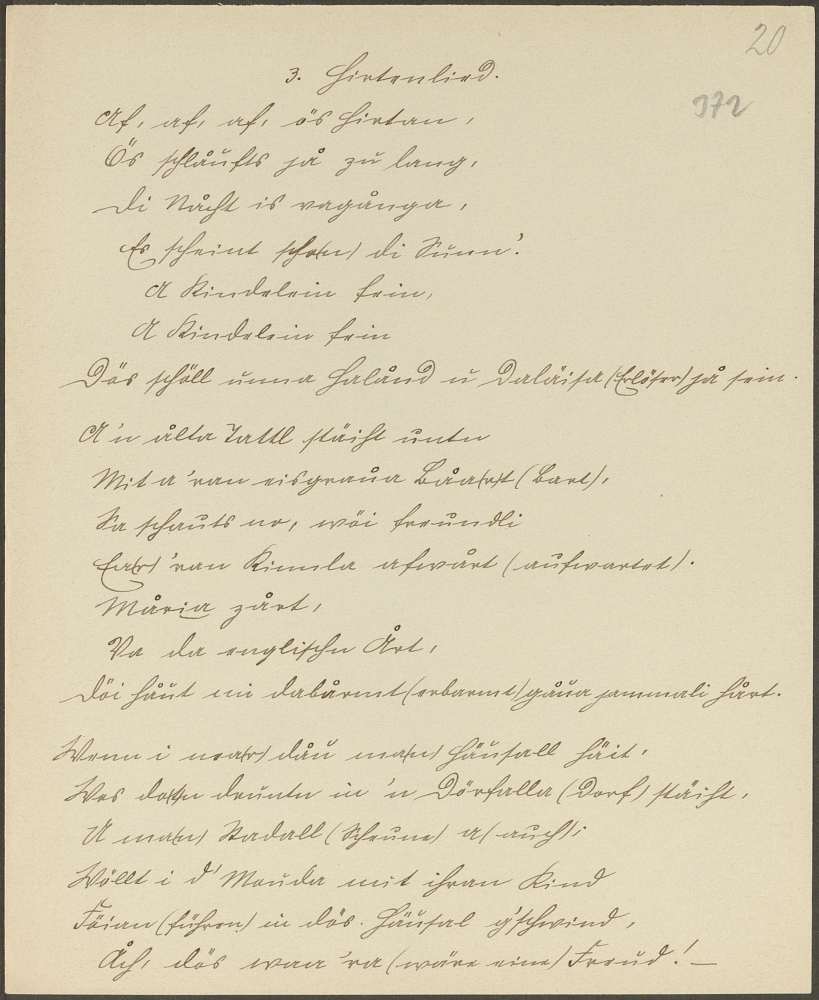 20
372
3. Hirtenlied.
Af, af, af, ös Hirtan,
Ös schlåufts jå zu lang,
Di Nåcht is vagånga,
Es scheint scho(n) di Sunn'.
A Kindelein fein,
A Kindelein fein
Dös schöll unna Halånd u Daläisa (Erlöser) jå sein.
A'n ålta Tattl stäiht untn
Mit a'ran eisgraua Båa(r)t (Bart),
Sa schauts no, wöi freundli
Ea(r)'ran Kinnla afwårt (aufwartet).
Måria zårt,
Va da englischn Årt,
Döi håut mi dabårmt (erbarmt) gåua jammali hårt.
Wenn i nea(r) dåu ma(n) Häusall häit,
Wos do(r)tn druntn in 'n Dörfalla (Dorf) stäiht,
U ma(n) Stadall (Scheune) a (auch);
Wöllt i d' Mouda mit ihran Kind
Föian (führen) in dös Häusal g'schwind,
Åch, dös waa 'ra (wäre eine) Freud! —